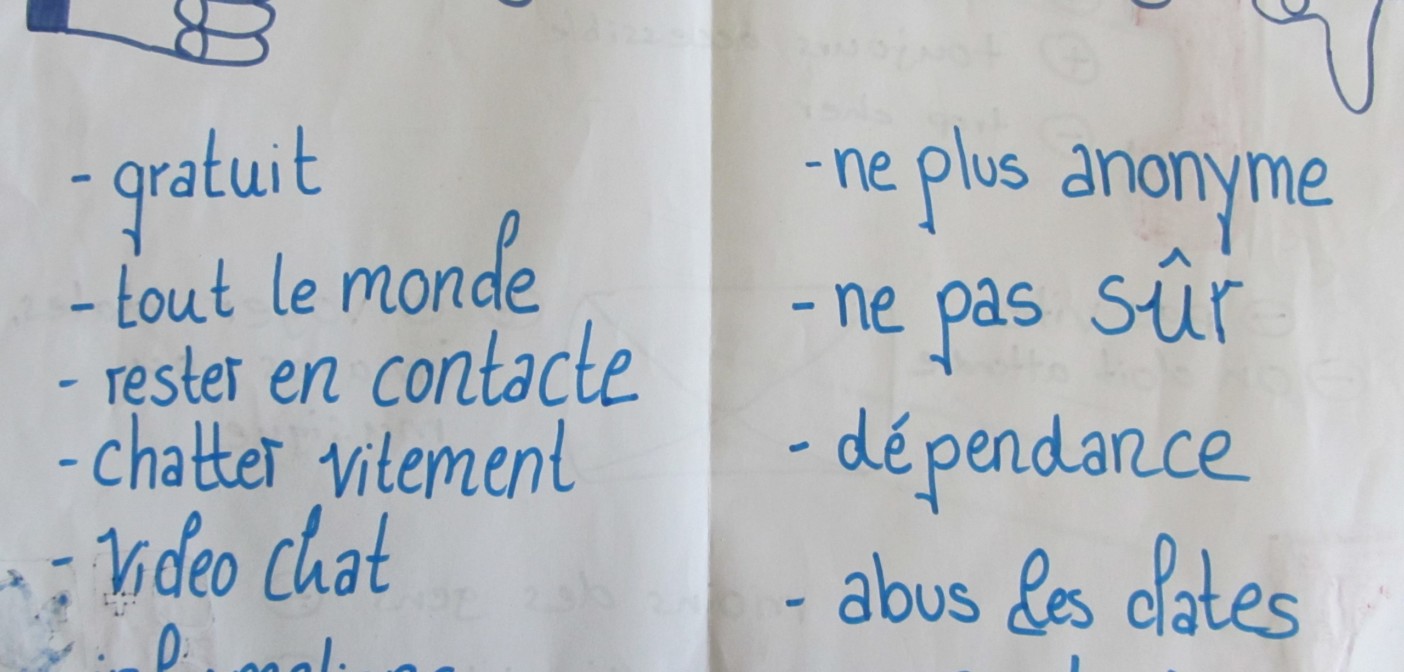 - gratuit
- tout le monde
- rester en contacte
- chatter vitement
- Video chat
- ne plus anonyme
- ne pas sûr
- dépendance
- abus des dates